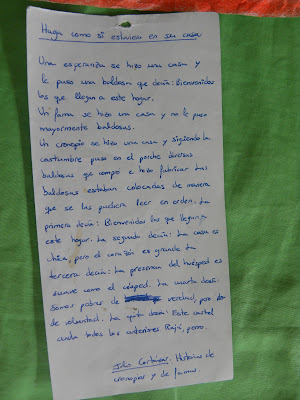 Haga como si estuviera en su casa
Una esperanza se hizo una casa y
le puso una baldosa que decía: Bienvenidos
los que llegan a este hogar.
Un fama se hizo una casa y no le puso
mayormente baldosas.
Un cronopio se hizo una casa y siguiendo la
costumbre puso en el porche diversas
baldosas que compró e hizo fabricar. Las
baldosas estaban colocadas de manera
que se las pudiera leer en orden. La
primera decía: Bienvenidos los que llegan a
este hogar. La segunda decía: La casa es
chica, pero el corazón es grande. La
tercera decía: La presencia del huésped es
suave como el césped. La cuarta decía:
Somos pobres de verdad, pero no
de voluntad. La quinta decía: Este cartel
anula todos los anteriores. Rajá, perro.
Julio Cortázar. Historias de
cronopios y de famas.